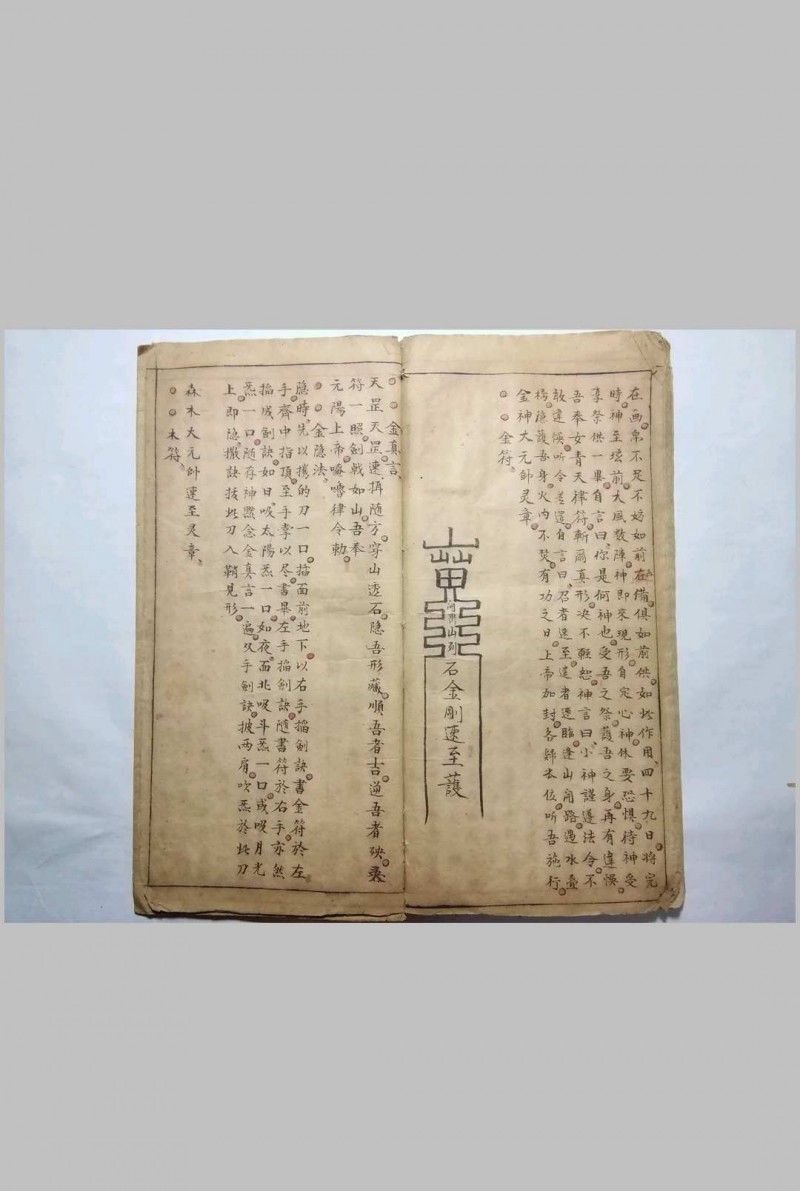 在画象不足不妨如前在備俱如前供如此作用四十九日將完
時神至壇前大風數陣神即來現形自定心神休要恐惧待神受
享祭供一畢自言曰你是何神也受吾之祭護吾之身再有違悞
吾奉女青天律符斬爾真形决不輕恕神言曰小神謹遵法令不
敢違悞听令差遣自言曰召者速至遣者速臨逢山開路遇水疊
橋隐護吾身火内不焚有功之日上帝加封各歸本位听吾施行
金神大元帅灵章
金符
石金剛速至護
金真言
天罡天罡速捐随方穿山透石隐吾形藏順吾者吉逆吾者殃柔
符一照劍戟如山吾奉
元陽上帝唵嚕律令勅
金隐法
臨時先以攜的刀一口插面前地下以右手掐劍訣書金符於左
手齊中指頂至手掌以尽書畢左手掐劍訣随書符於右手亦然
掐成劍訣如日吸太陽炁一口如夜面北吸斗炁一口或吸月光
炁一口随存神黙念金真言一遍双手劍訣披两肩吹炁於此刀
上即隐撒訣技此刀入鞘見形
森木大元帅運至灵章
木符